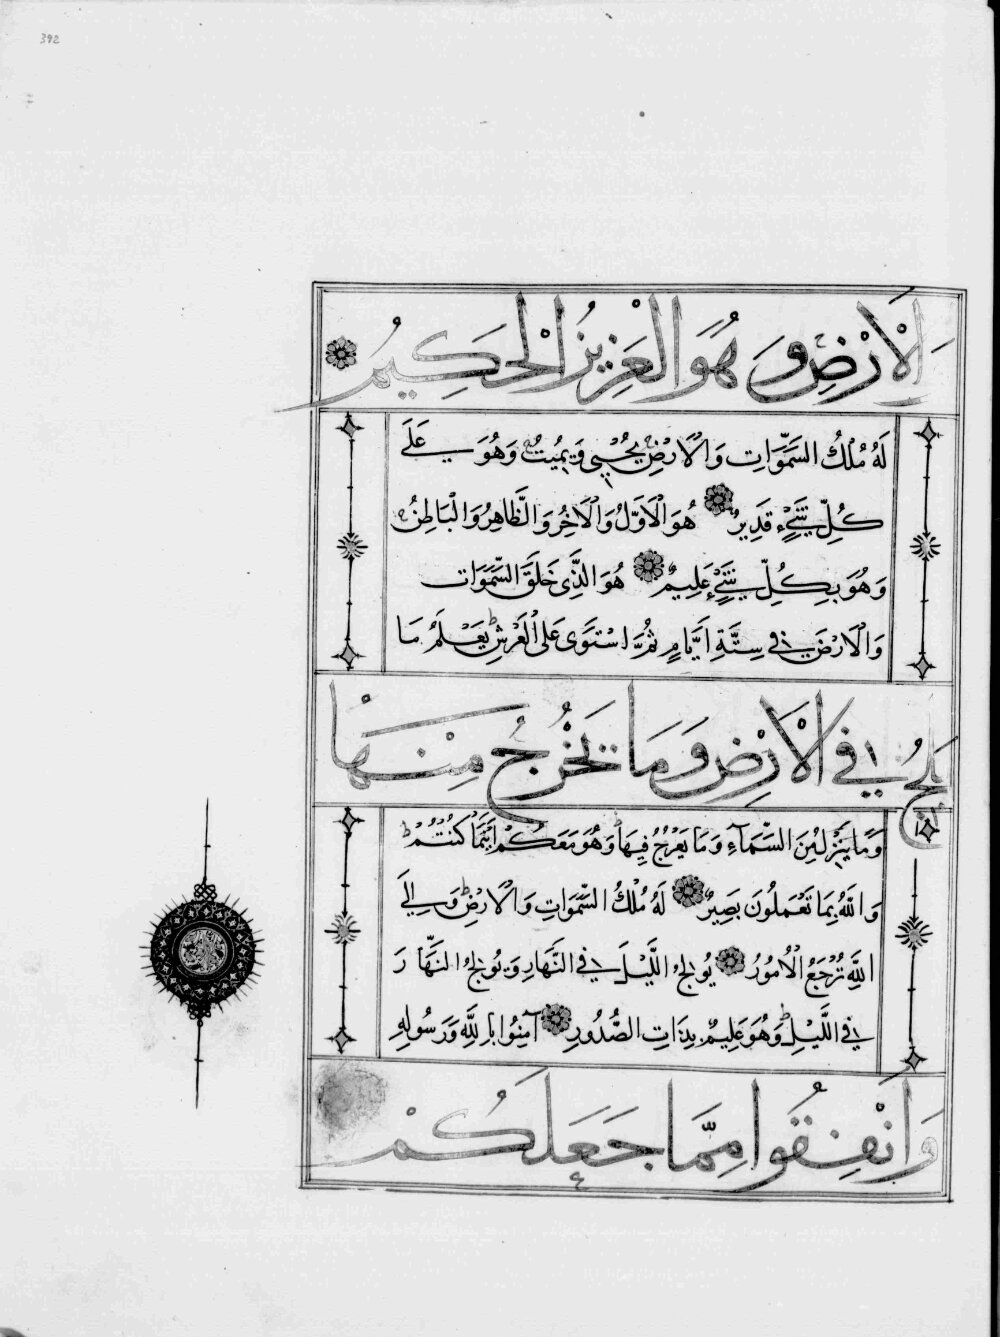 392
الْاَرْضِ وَهُوَ الْعَزِيزُ الْحَكِيمُ
لَهُ مُلْكُ السَّمٰوَاتِ وَالْاَرْضِ يُحْيٖى وَيُمٖيتُ وَهُوَ عَلٰى
كُلِّ شَيْءٍ قَدِيرٌ هُوَ الْاَوَّلُ وَالْاٰخِرُ وَالظَّاهِرُ وَالْبَاطِنُ
وَهُوَ بِكُلِّ شَيْءٍ عَلِيمٌ هُوَ الَّذِى خَلَقَ السَّمٰوَاتِ
وَالْاَرْضَ فِى سِتَّةِ اَيَّامٍ ثُمَّ اسْتَوٰى عَلَى الْعَرْشِ يَعْلَمُ مَا
يَلِجُ فِى الْاَرْضِ وَمَا يَخْرُجُ مِنْهَا
وَمَا يَنْزِلُ مِنَ السَّمَاءِ وَمَا يَعْرُجُ فِيهَا وَهُوَ مَعَكُمْ اَيْنَمَا كُنْتُمْ
وَاللّٰهُ بِمَا تَعْمَلُونَ بَصِيرٌ لَهُ مُلْكُ السَّمٰوَاتِ وَالْاَرْضِ وَاِلَى
اللّٰهِ تُرْجَعُ الْاُمُورُ يُولِجُ اللَّيْلَ فِى النَّهَارِ وَيُولِجُ النَّهَارَ
فِى اللَّيْلِ وَهُوَ عَلِيمٌ بِذَاتِ الصُّدُورِ اٰمِنُوا بِاللّٰهِ وَرَسُولِهِ
وَاَنْفِقُوا مِمَّا جَعَلَكُمْ